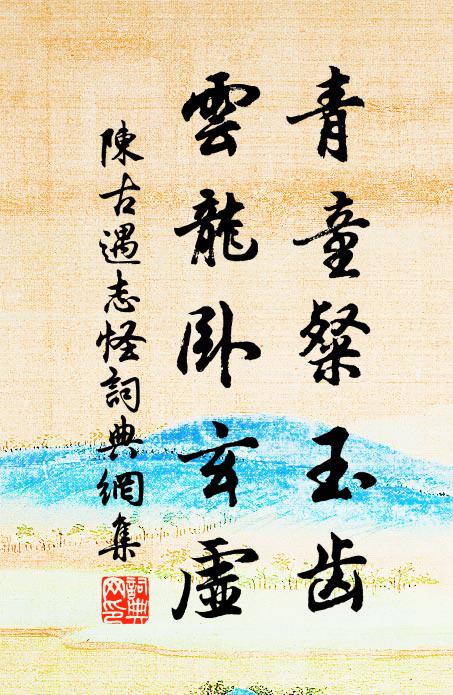 青童粲玉齿
雲龍卧玄虛
陳古遇志怪詞典網集
詞典網印